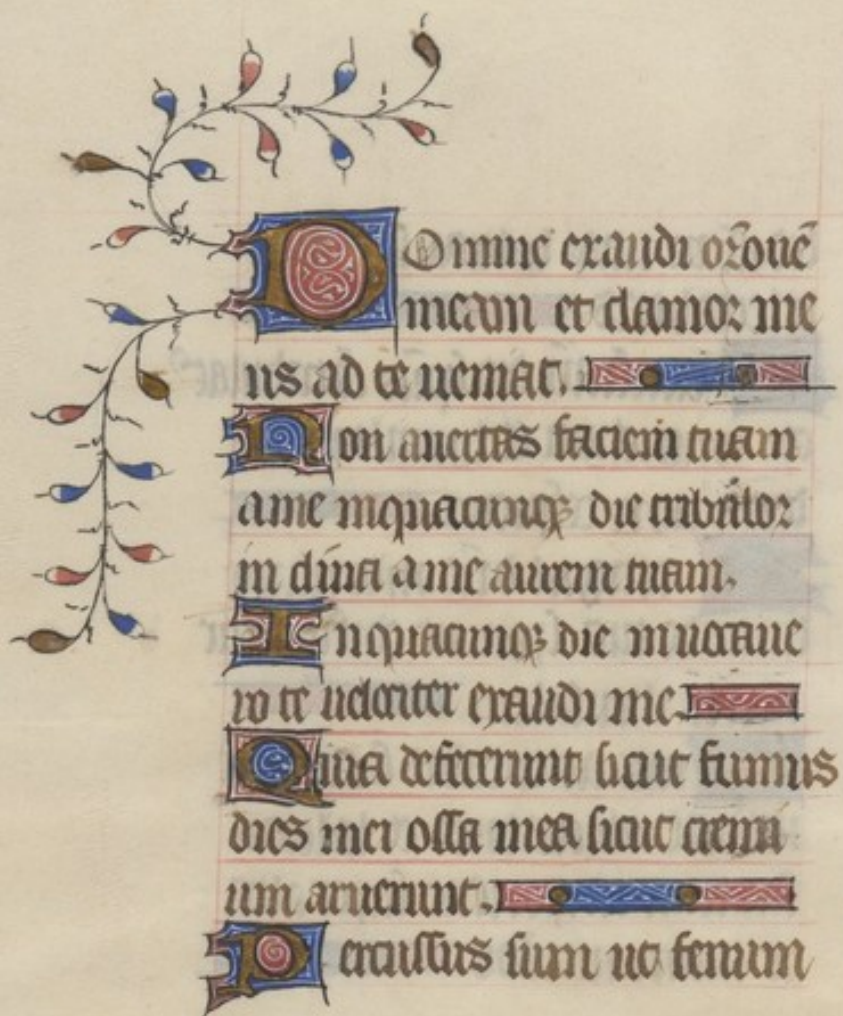 Domine exaudi or̄onē
meam et clamor me
us ad te ueniat.
Non auertas faciem tuam
a me in quacunqꝫ die tribulor
inclina a me aurem tuam.
In quacunqꝫ die inuocaue
ro te uelociter exaudi me.
Quia defecerunt sicut fumus
dies mei ossa mea sicut cremi
um aruerunt.
Percussus sum ut fenum